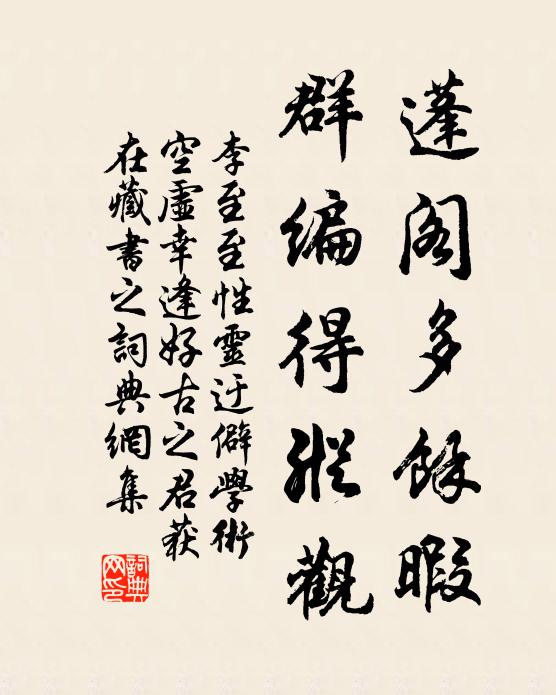 蓬阁多餘暇
群编得縱觀
李至至性靈迂僻學術
空虛幸逢好古之君获
在藏書之詞典網集
詞典
网印